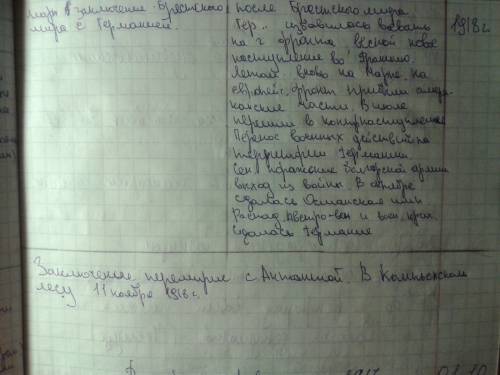 Март заключение Брестского
мира с Германией.
после Брестского мира
Гер. избавилась воевать
на 2 фронта весной новое
наступление во Франции.
Летом вновь на Марне. на
европейс. фронт прибыли амери-
канские части. В июле
перешли в контрнаступление
Перенос военных действий на
территории Германии
Сен поражение болгарской армии
выход из войны. В октябре
сдалась Османская имп
Распад Австро-вен и воен. крах.
сдалась Германия
1918 г.
Заключение перемирия с Антантой. В Компьенском
лесу 11 ноября 1918 г.